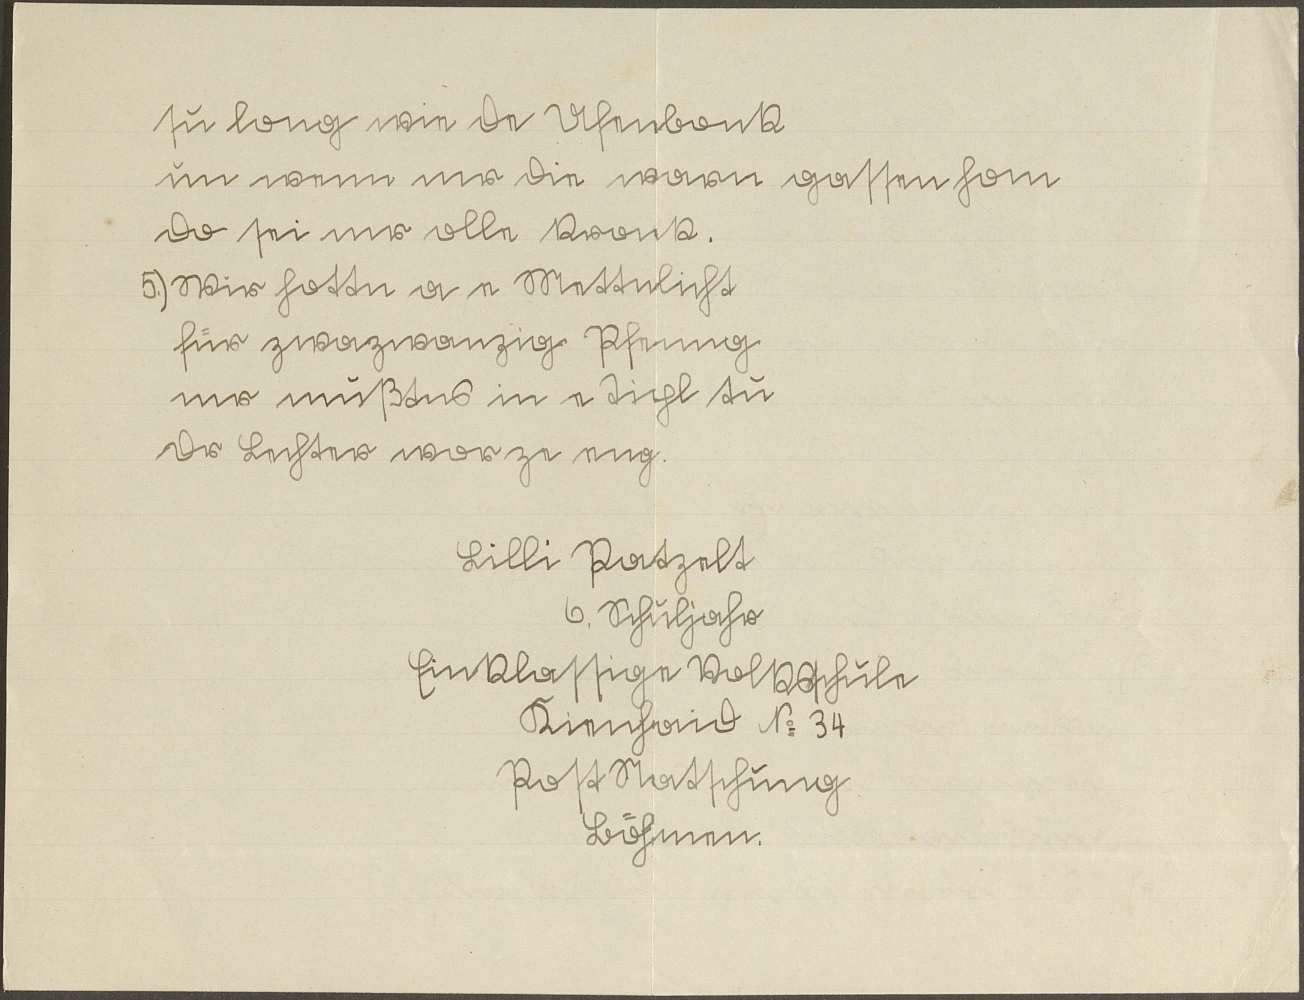 su long wie de Ufenbonk
un wenn mr die warn gassen hom
do sei mr olle kronk.
5.) Wir hottn a e Mettnlicht
für zwazwanzig Pfenng
mr mußtns in e Tichl tu
dr Lechter wor ze eng.
Lilli Patzelt
6. Schuljahr
Einklassige Volksschule
Kienhaid № 34
Post Natschung
Böhmen.